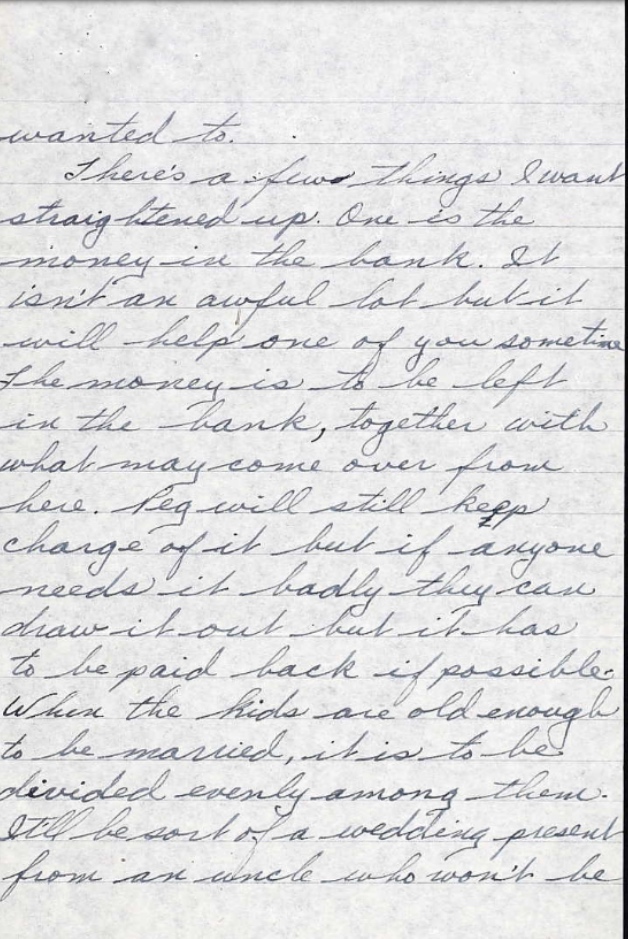 wanted to.
There's a few things I want
straightened up. One is the
money in the bank. It
isn't an awful lot but it
will help one of you sometime
The money is to be left
in the bank, together with
what may come over from
here. Peg will still keep
charge of it but if anyone
needs it badly they can
draw it out but it has
to be paid back if possible.
When the kids are old enough
to be married, it is to be
divided evenly among them.
It'll be sort of a wedding present
from an uncle who won't be